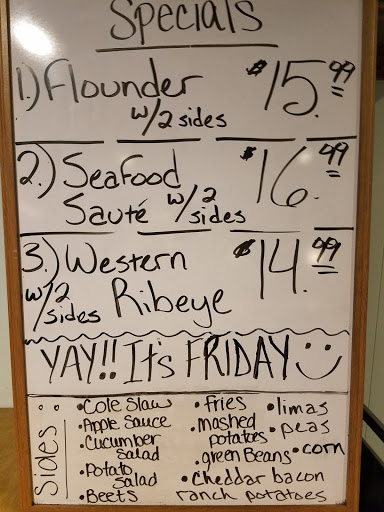 Specials
1.) Flounder $15.99
w/2 sides
2.) Seafood $16.99
Sauté w/2 sides
3.) Western $14.99
w/2 sides Ribeye
YAY!! It's FRIDAY
Sides
• Cole Slaw
• Apple Sauce
• Cucumber
Salad
• Potato
Salad
• Beets
• fries
• Mashed
potatoes
• green Beans
• Cheddar bacon
ranch potatoes
• limas
• peas
• corn